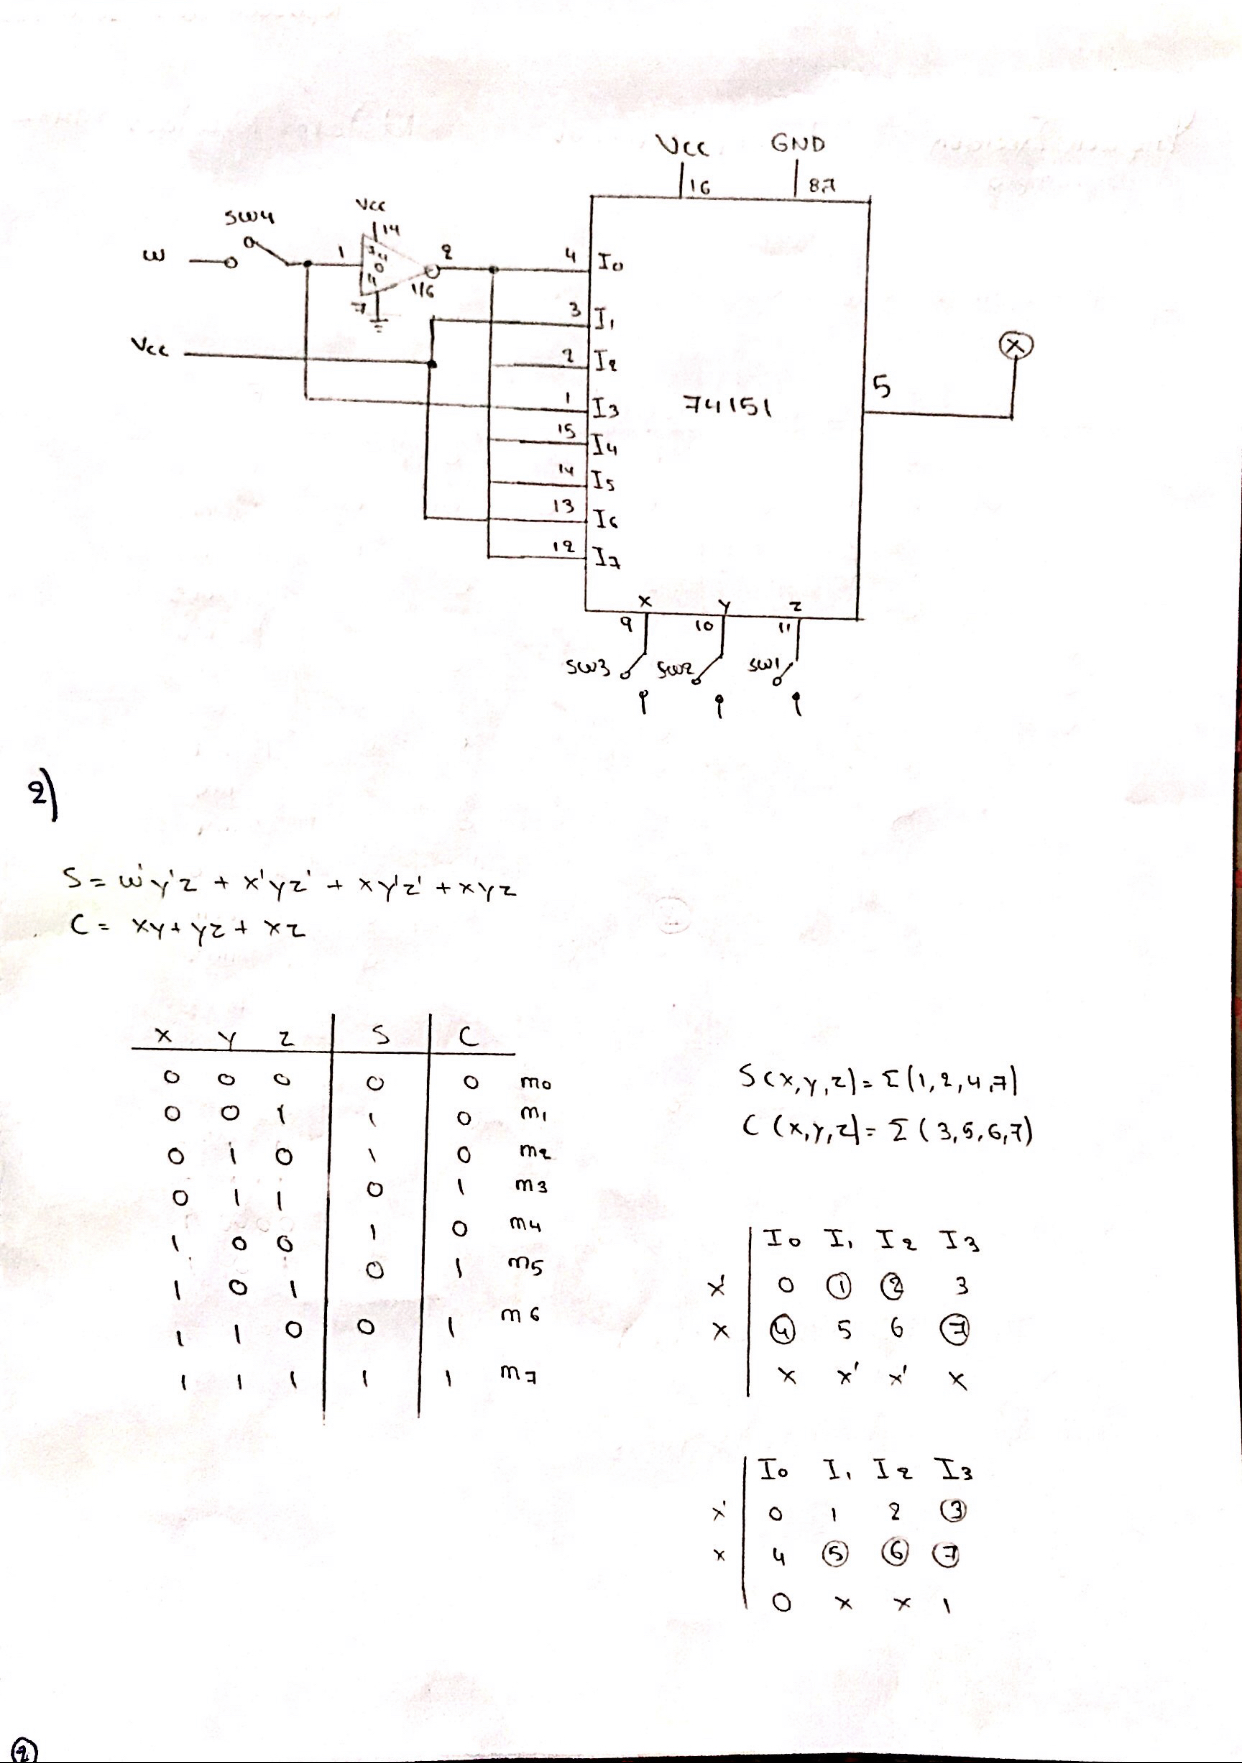 Vcc GND
16 8,7
SW4 Vcc
14
w 1 7404 2 4 I0
7 1/6
3 I1
Vcc 2 I2
5
1 I3 74151
15 I4
14 I5
13 I6
12 I7
x y z
9 10 11
SW3 SW2 SW1
2)
S = w'y'z + x'yz' + xy'z' + xyz
C = xy + yz + xz
x y z S C
0 0 0 0 0 m0
0 0 1 1 0 m1
0 1 0 1 0 m2
0 1 1 0 1 m3
1 0 0 1 0 m4
1 0 1 0 1 m5
1 1 0 0 1 m6
1 1 1 1 1 m7
S(x,y,z) = Σ(1,2,4,7)
C(x,y,z) = Σ(3,5,6,7)
I0 I1 I2 I3
x' 0 1 2 3
x 4 5 6 7
x x' x' x
I0 I1 I2 I3
x' 0 1 2 3
x 4 5 6 7
0 x x 1
2